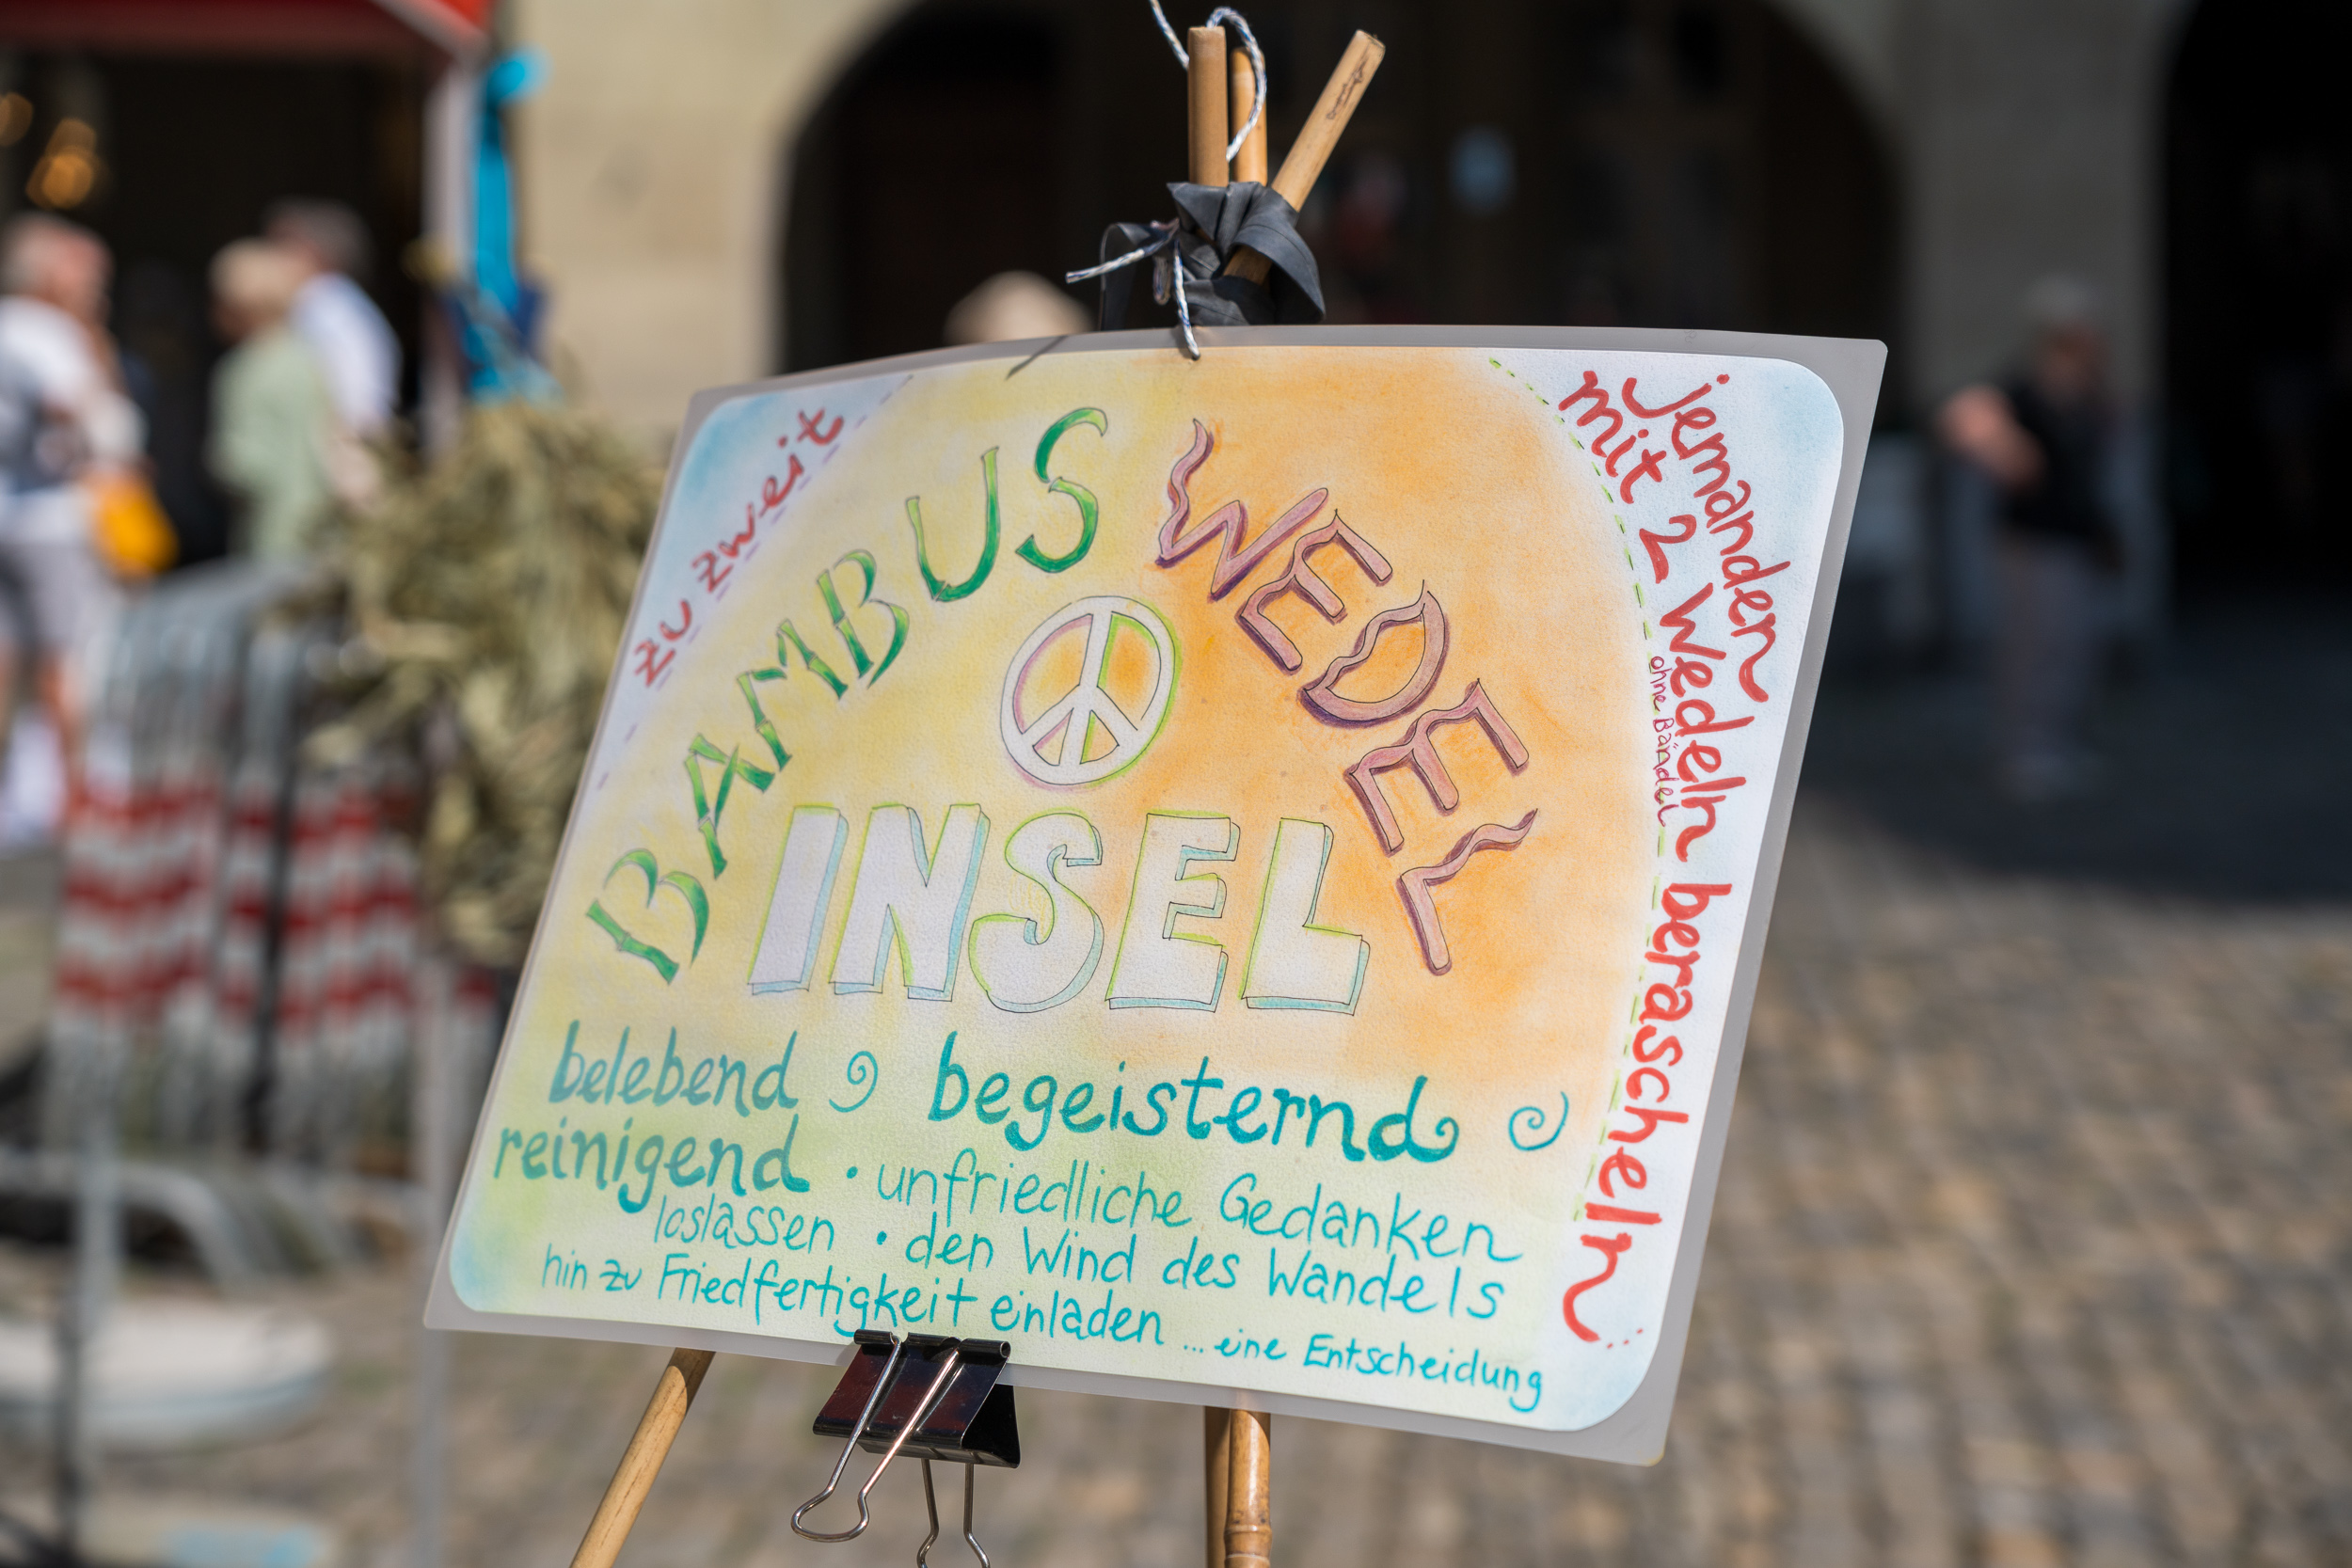 zu zweit
BAMBUS WEDEL
INSEL
jemanden
mit 2 Wedeln berascheln
ohne Bändel
belebend begeisternd
reinigend • unfriedliche Gedanken
loslassen • den Wind des Wandels
hin zu Friedfertigkeit einladen ... eine Entscheidung